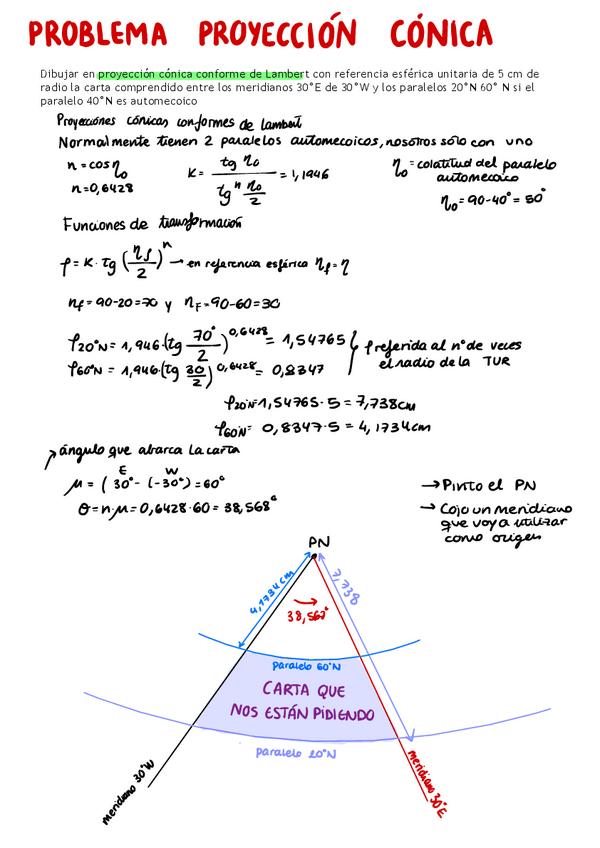 PROBLEMA PROYECCIÓN CÓNICA
Dibujar en proyección cónica conforme de Lambert con referencia esférica unitaria de 5 cm de
radio la carta comprendido entre los meridianos 30°E de 30°W y los paralelos 20°N 60° N si el
paralelo 40°N es automecoico
Proyecciones cónicas conformes de lambert
Normalmente tienen 2 paralelos automecoicos, nosotros sólo con uno
n = cos η₀
n = 0,6428
K = tg η₀ / tgⁿ η₀/2 = 1,1946
η₀ = colatitud del paralelo
automecoico
η₀ = 90-40° = 50°
Funciones de transformación
ρ = K · tg (ηf/2)ⁿ → en referencia esférica ηf = η
ηf = 90-20 = 70 y ηF = 90-60 = 30
ρ20°N = 1,946·(tg 70°/2)^0,6428 = 1,54765
ρ60°N = 1,946·(tg 30/2)^0,6428 = 0,8347
ρ referida al nº de veces
el radio de la TUR
ρ20°N = 1,54765·5 = 7,738cm
ρ60N = 0,8347·5 = 4,1734cm
ángulo que abarca la carta
E W
μ = (30° - (-30°) = 60°
θ = n·μ = 0,6428·60 = 38,568°
→ Pinto el PN
→ Cojo un meridiano
que voy a utilizar
como origen
PN
4,1734cm
7,738
38,567°
paralelo 60°N
CARTA QUE
NOS ESTÁN PIDIENDO
paralelo 20°N
meridiano 30°W
meridiano 30°E